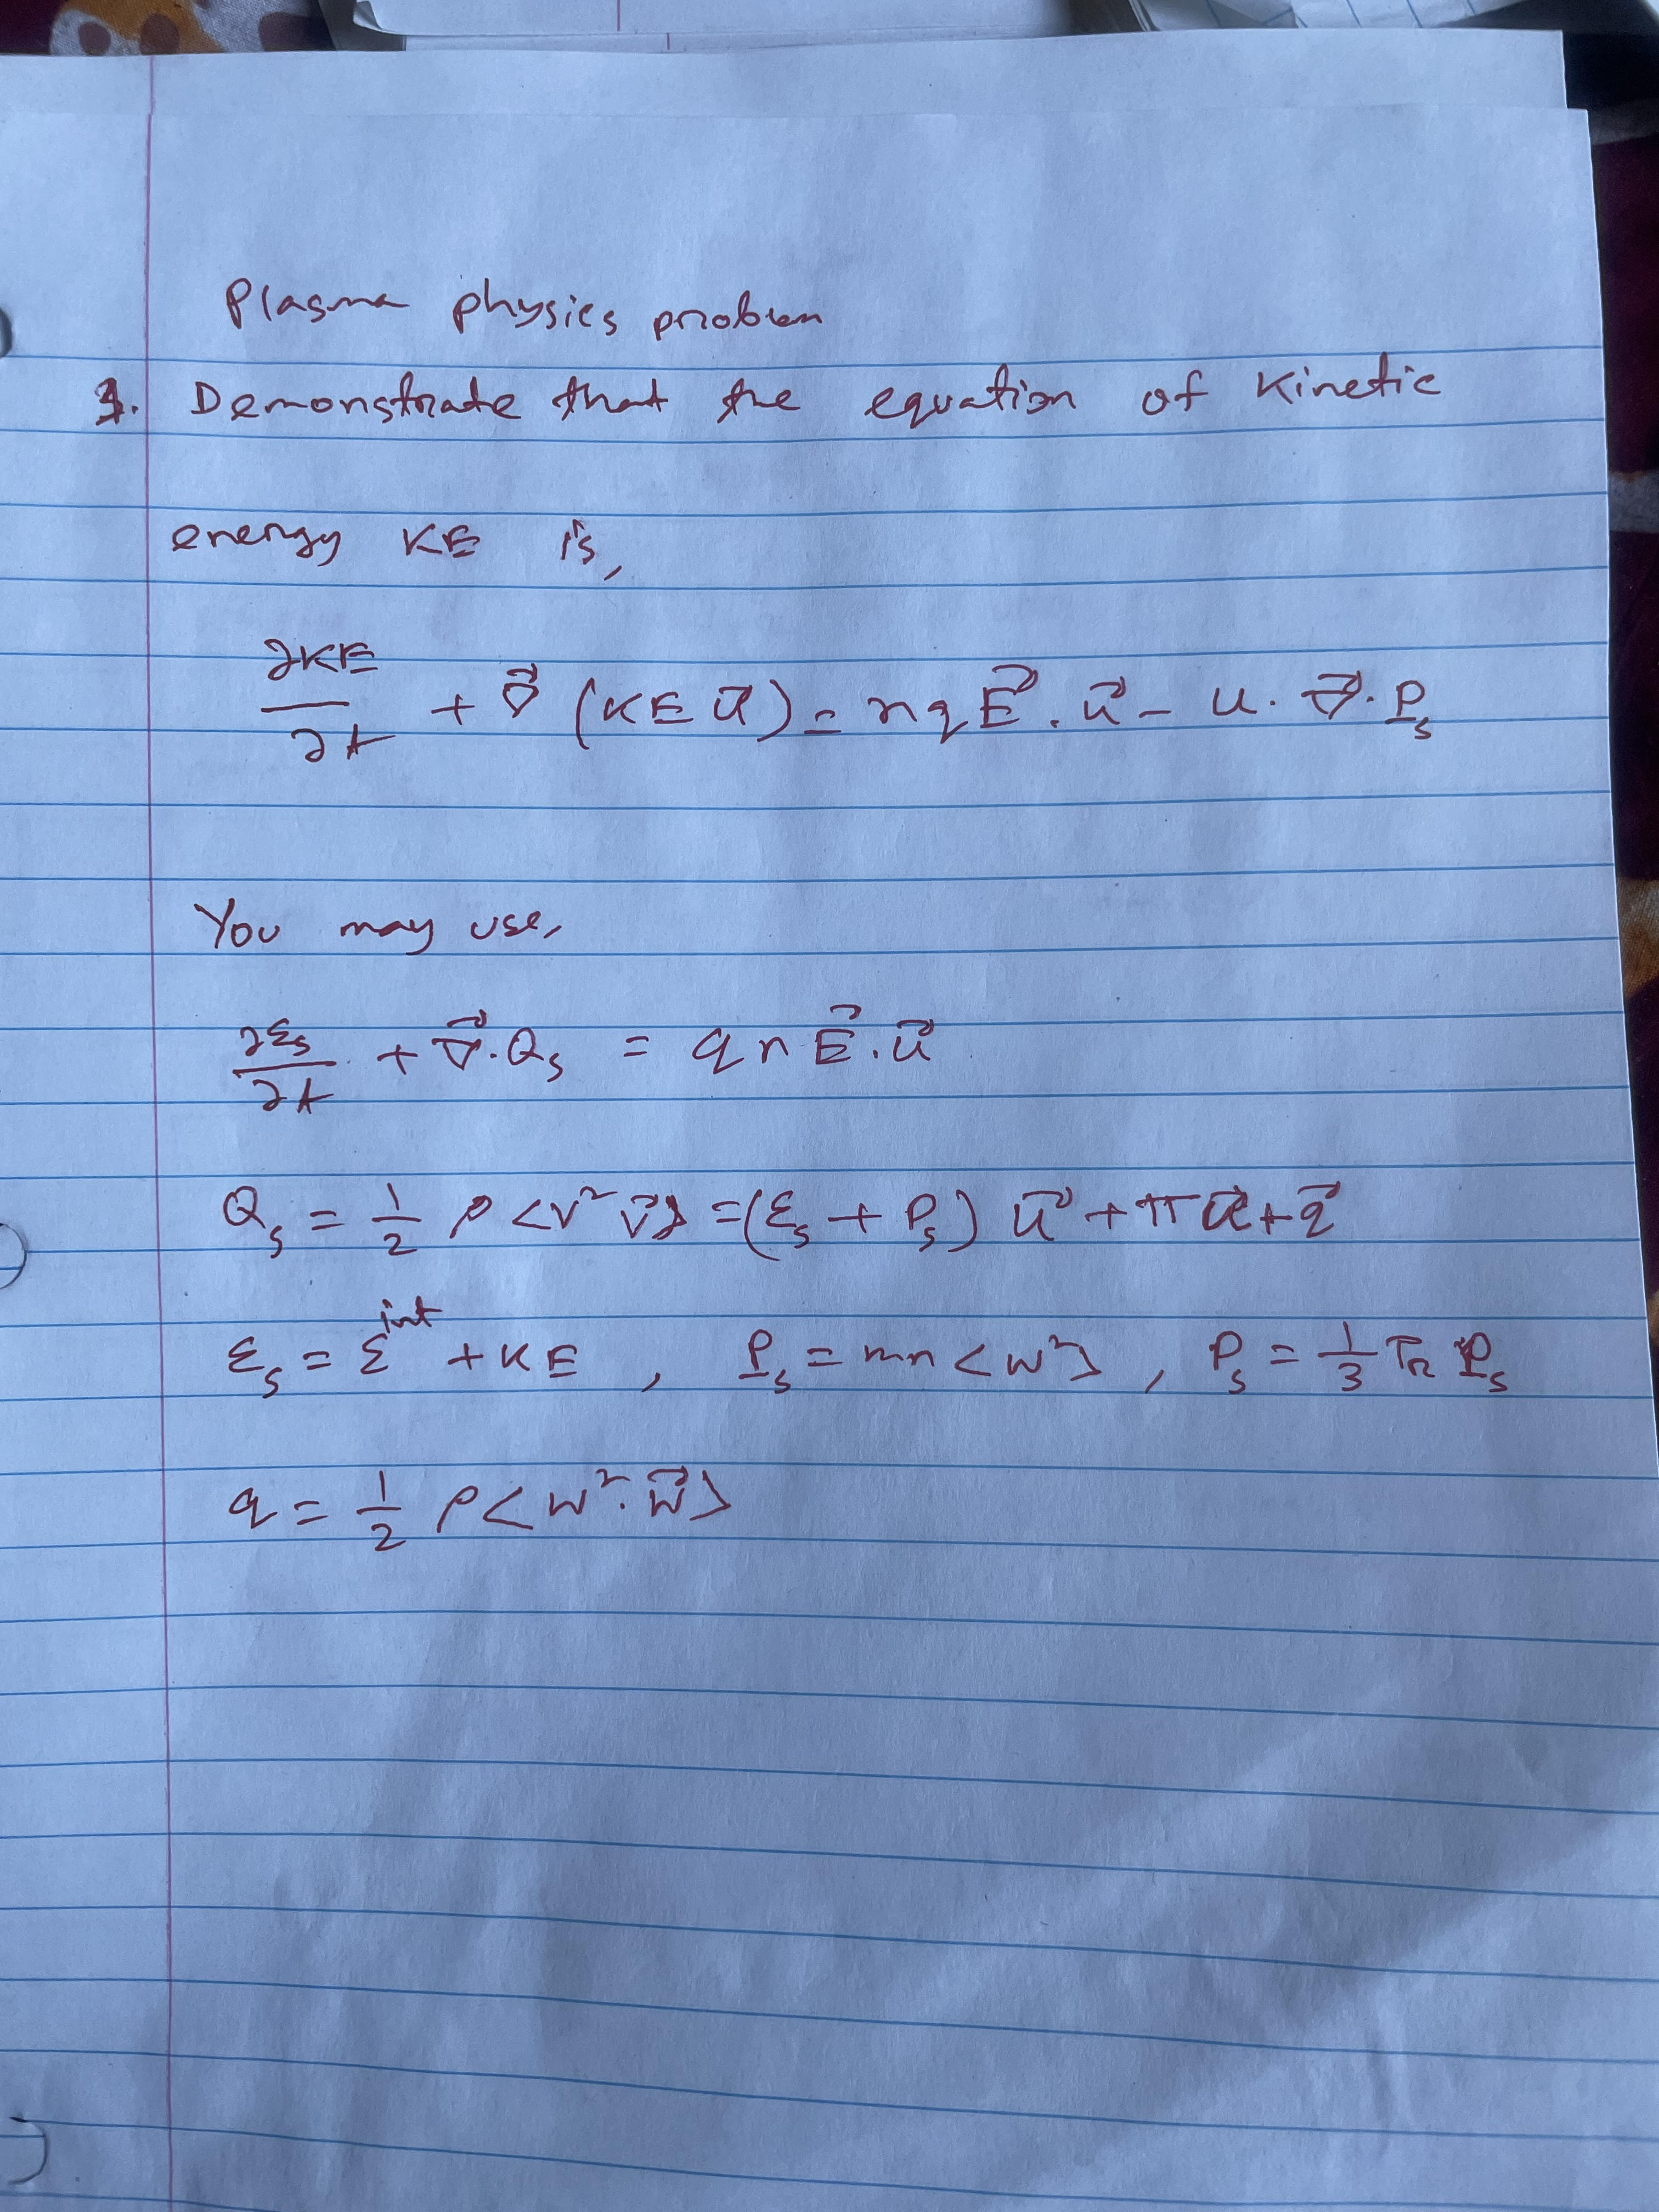 Plasma physics problem
1. Demonstrate that the equation of Kinetic
energy KE is,
∂KE/∂t + ∇⃗ (KE u⃗) = nqE⃗.u⃗ - u. ∇⃗. P̲s
You may use,
∂Ɛs/∂t + ∇⃗.Qs = qnE⃗.u⃗
Qs = 1/2 ρ <v² v⃗> = (Ɛs + Ps) u⃗ + π u⃗ + q⃗
Ɛs = Ɛ^int + KE , P̲s = mn <w²> , Ps = 1/3 Tr P̲s
q = 1/2 ρ <w². w⃗>